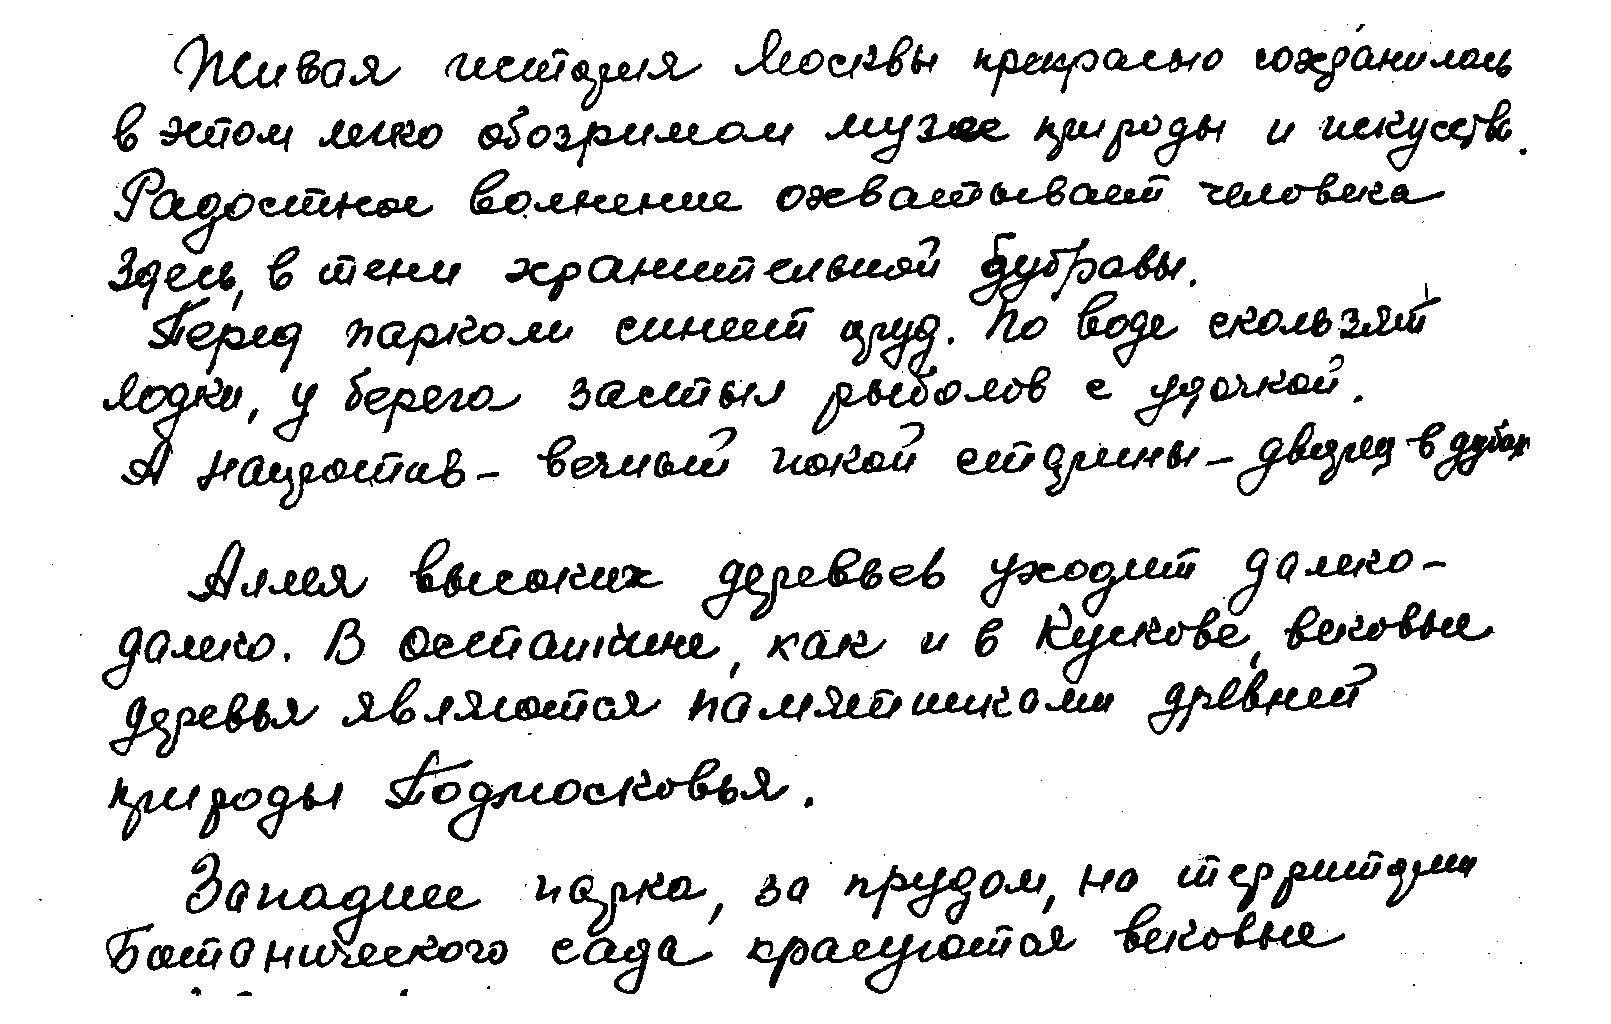 Живая история Москвы прекрасно сохранилась
в этом легко обозримом музее природы и искусства.
Радостное волнение охватывает человека
здесь, в тени хранительной дубравы.
Перед парком синеет пруд. По воде скользят
лодки, у берега застыл рыболов с удочкой.
А напротив - вечный покой старины - дворец в дубах
Аллея высоких деревьев уходит далеко-
далеко. В Останкине, как и в Кускове, вековые
деревья являются памятниками древней
природы Подмосковья.
Западнее парка, за прудом, на территории
Ботанического сада красуются вековые